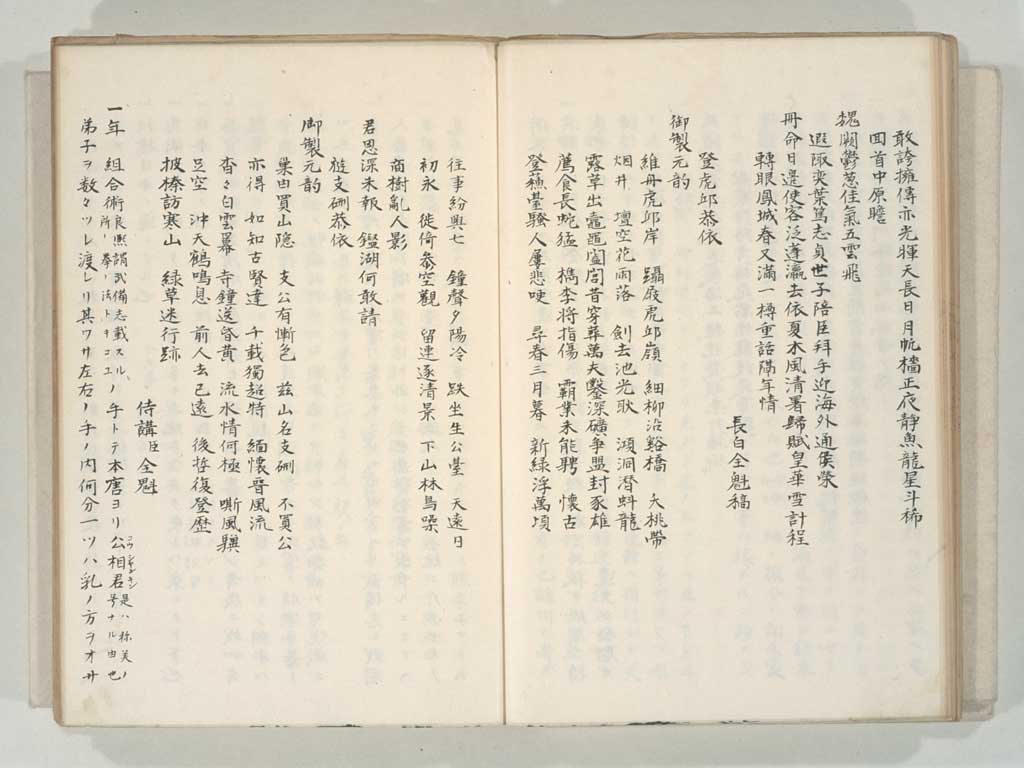 敢誇擁傳亦光暉天長日月帆檣正夜静魚龍星斗稀
回首中原瞻
魏闕鬱葱佳氣五雲飛
遐陬奕葉篤志貞世子陪臣拜手迎海外通侯榮
冊命日邊使客泛蓬瀛去依夏木風清署歸賦皇華雪計程
轉眼鳳城春又滿一樽重話隔年情
長白全魁稿
登虎邱恭依
御製元韵
維舟虎邱岸 躡屐虎邱嶺 細柳沿谿橋 夭桃帶
烟井 壇空花雨落 劍去池光耿 澒洞潛蚪龍
露草出鼃黽闔閭昔穿葬萬夫鑿深礦爭盟封豕雄
薦食長蛇猛 檇李將指傷 霸業未能騁 懷古
登蘓臺騷人屢悲哽 尋春三月暮 新綠浮萬頃
往事紛與七 鐘聲夕陽冷 趺坐生公臺 天遠日
初永 徙倚叅空觀 留連逐清景 下山林鳥噪
商樹亂人影
君恩深未報 鑑湖何敢請
遊支硎恭依
御製元韵
巢由買山隱 支公有慚色 茲山名支硎 不買公
亦得 如知古賢達 千載獨超特 緬懷晉風流
杳々白雲冪 寺鐘送昏黄 流水情何極 嘶風驥
㠯空 沖天鶴鳴息 前人去已遠 後裕復登歷
披榛訪寒山 綠草迷行跡
侍講臣全魁
一年 組合術良熙謂武備志載スル、所ノ拳ノ法トキコユノ 手トテ本唐ヨリ公相君コウシヤンキン是ハ称美ノ号ナル由也
弟子ヲ数々ツレ渡レリ其ワサ左右ノ手ノ内何分一ツハ乳ノ方ヲオサ